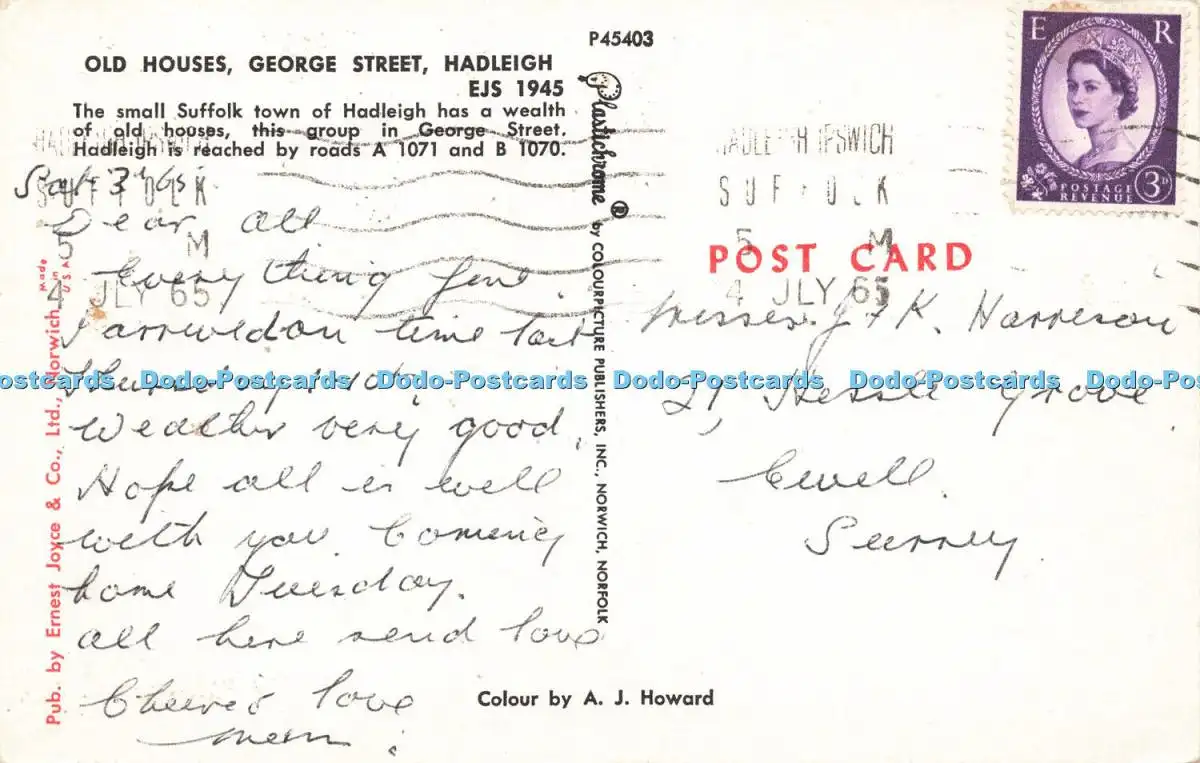 P45403
OLD HOUSES, GEORGE STREET, HADLEIGH
EJS 1945
The small Suffolk town of Hadleigh has a wealth
of old houses, this group in George Street.
Hadleigh is reached by roads A 1071 and B 1070.
Sat 3
Dear all
Every thing fine.
I arrived on time last
Weather very good.
Hope all is well
with you. Coming
home Tuesday.
all here send love
Cheerio love
Mum.
Made in U.S.A.
Pub. by Ernest Joyce & Co., Ltd., Norwich
Plastichrome ® by COLOURPICTURE PUBLISHERS, INC., NORWICH, NORFOLK
Colour by A. J. Howard
E R
POSTAGE
REVENUE
3D
HADLEIGH IPSWICH
SUFFOLK
5 M
4 JLY 65
SUFFOLK
5 M
4 JLY 65
POST CARD
J & K. Harrison
Grove
Ewell.
Surrey.
Dodo-Postcards Dodo-Postcards Dodo-Postcards Dodo-Postcards Dodo-Postcards